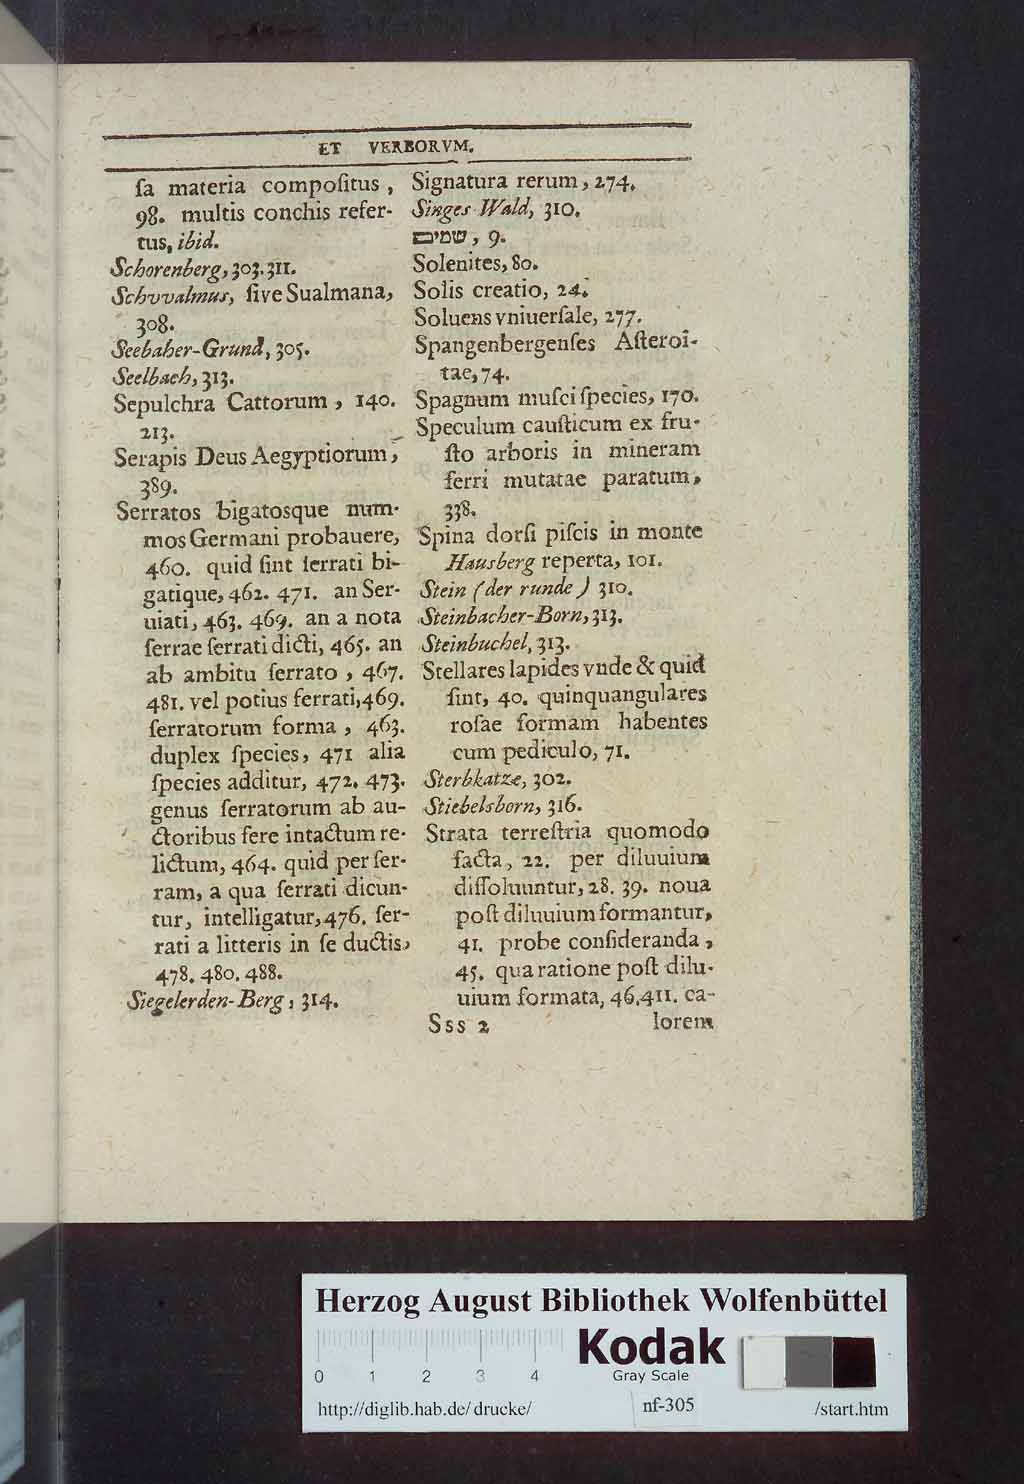 ET VERBORVM.
ſa materia compoſitus,
98. multis conchis refer-
tus, ibid.
Schorenberg, 303. 311.
Schvvalmus, ſive Sualmana,
308.
Seebaher-Grund, 305.
Seelbach, 313.
Sepulchra Cattorum, 140.
213.
Serapis Deus Aegyptiorum,
389.
Serratos bigatosque num-
mos Germani probauere,
460. quid ſint ſerrati bi-
gatique, 462. 471. an Ser-
uiati, 463. 469. an a nota
ſerrae ſerrati dicti, 465. an
ab ambitu ſerrato, 467.
481. vel potius ferrati, 469.
ſerratorum forma, 463.
duplex ſpecies, 471 alia
ſpecies additur, 472. 473.
genus ſerratorum ab au-
ctoribus fere intactum re-
lictum, 464. quid per ſer-
ram, a qua ſerrati dicun-
tur, intelligatur, 476. ſer-
rati a litteris in ſe ductis,
478. 480. 488.
Siegelerden-Berg, 314.
Signatura rerum, 274.
Singes Wald, 310.
שמים, 9.
Solenites, 80.
Solis creatio, 24.
Soluens vniuerſale, 277.
Spangenbergenſes Aſteroi-
tae, 74.
Spagnum muſci ſpecies, 170.
Speculum cauſticum ex fru-
ſto arboris in mineram
ferri mutatae paratum,
338.
Spina dorſi piſcis in monte
Hausberg reperta, 101.
Stein (der runde) 310.
Steinbacher-Born, 313.
Steinbuchel, 313.
Stellares lapides vnde & quid
ſint, 40. quinquangulares
roſae formam habentes
cum pediculo, 71.
Sterbkatze, 302.
Stiebelsborn, 316.
Strata terreſtria quomodo
facta, 22. per diluuium
diſſoluuntur, 28. 39. noua
poſt diluuium formantur,
41. probe conſideranda,
45. qua ratione poſt dilu-
uium formata, 46. 411. ca-
Sss 2 lorem
Herzog August Bibliothek Wolfenbüttel
0 1 2 3 4
Kodak
Gray Scale
http://diglib.hab.de/drucke/ nf-305 /start.htm